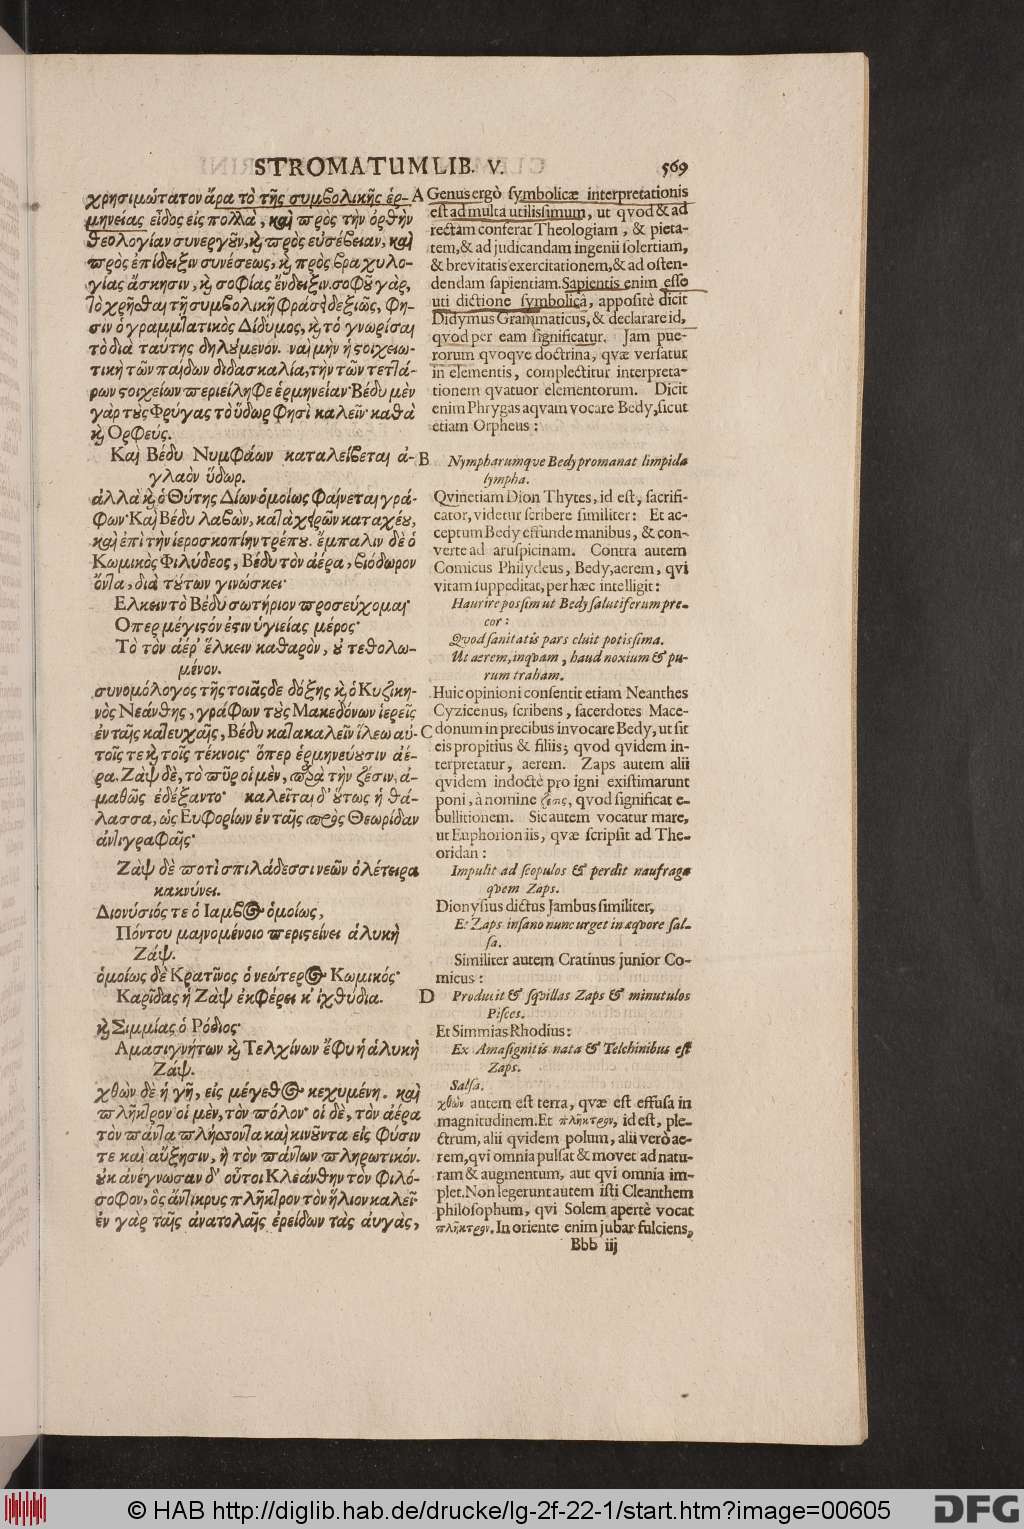 STROMATUM LIB. V. 569
χρησιμώτατον ἄρα τὸ τῆς συμβολικῆς ἑρ-
μηνείας εἶδος εἰς πολλὰ, καὶ πρὸς τὴν ὀρθὴν
θεολογίαν συνεργοῦν, καὶ πρὸς εὐσέβειαν, καὶ
πρὸς ἐπίδειξιν συνέσεως, καὶ πρὸς βραχυλο-
γίας ἄσκησιν, καὶ σοφίας ἔνδειξιν. σοφοῦ γὰρ,
τὸ χρῆσθαι τῇ συμβολικῇ φράσει δεξιῶς, φη-
σιν ὁ γραμματικὸς Δίδυμος, καὶ τὸ γνωρίσαι
τὸ διὰ ταύτης δηλούμενον. ναὶ μὴν ἡ στοιχειω-
τικὴ τῶν παίδων διδασκαλία, τὴν τῶν τεττά-
ρων στοιχείων περιείληφε ἑρμηνείαν· Βέδυ μὲν
γὰρ τοὺς Φρύγας τὸ ὕδωρ φησὶ καλεῖν· καθὰ
καὶ Ορφεύς.
Καὶ Βέδυ Νυμφάων καταλείβεται ἀ-
γλαὸν ὕδωρ.
ἀλλὰ καὶ ὁ Θύτης Δίων ὁμοίως φαίνεται γρά-
φων· Καὶ Βέδυ λαβὼν, κατὰ χειρῶν καταχέου,
καὶ ἐπὶ τὴν ἱεροσκοπίην τρέπου. ἔμπαλιν δὲ ὁ
Κωμικὸς Φιλύδεος, Βέδυ τὸν ἀέρα, βιόδωρον
ὄντα, διὰ τούτων γινώσκει·
Ελκειν τὸ Βέδυ σωτήριον προσεύχομαι·
Οπερ μέγιστόν ἐστιν ὑγιείας μέρος·
Τὸ τὸν ἀέρ' ἕλκειν καθαρὸν, οὐ τεθολω-
μένον.
συνομόλογος τῆς τοιᾶςδε δόξης καὶ ὁ Κυζικη-
νὸς Νεάνθης, γράφων τοὺς Μακεδόνων ἱερεῖς
ἐν ταῖς κατευχαῖς, Βέδυ κατακαλεῖν ἵλεω αὐ-
τοῖς τε καὶ τοῖς τέκνοις· ὅπερ ἑρμηνεύουσιν ἀέ-
ρα. Ζὰψ δὲ, τὸ πῦρ οἱ μὲν, παρὰ τὴν ζέσιν, ἀ-
μαθῶς ἐδέξαντο· καλεῖται δ' οὕτως ἡ θά-
λασσα, ὡς Ευφορίων ἐν ταῖς πρὸς Θεωρίδαν
ἀντιγραφαῖς·
Ζὰψ δὲ ποτὶ σπιλάδεσσι νεῶν ὀλέτειρα
κακνύνει.
Διονύσιός τε ὁ Ιαμβος ὁμοίως,
Πόντου μαινομένοιο περιστείνει ἁλυκὴ
Ζάψ.
ὁμοίως δὲ Κρατῖνος ὁ νεώτερος Κωμικός·
Καρῖδας ἡ Ζὰψ ἐκφέρει κ' ἰχθύδια.
καὶ Σιμμίας ὁ Ρόδιος·
Αμασιγνήτων καὶ Τελχίνων ἔφυ ἡ ἁλυκὴ
Ζάψ.
χθὼν δὲ ἡ γῆ, εἰς μέγεθος κεχυμένη. καὶ
πλῆκτρον οἱ μὲν, τὸν πόλον· οἱ δὲ, τὸν ἀέρα
τὸν πάντα πλήσσοντα καὶ κινοῦντα εἰς φύσιν
τε καὶ αὔξησιν, ἢ τὸν πάντων πληρωτικόν.
οὐκ ἀνέγνωσαν δ' οὗτοι Κλεάνθην τὸν φιλό-
σοφον, ὃς ἄντικρυς πλῆκτρον τὸν ἥλιον καλεῖ·
ἐν γὰρ ταῖς ἀνατολαῖς ἐρείδων τὰς αὐγὰς,
A Genus ergò symbolicæ interpretationis
est ad multa utilissimum, ut qvod & ad
rectam conferat Theologiam, & pieta-
tem, & ad judicandam ingenii solertiam,
& brevitatis exercitationem, & ad osten-
dendam sapientiam. Sapientis enim esse
uti dictione symbolicâ, appositè dicit
Didymus Grammaticus, & declarare id,
qvod per eam significatur. Jam pue-
rorum qvoqve doctrina, qvæ versatur
in elementis, complectitur interpreta-
tionem qvatuor elementorum. Dicit
enim Phrygas aqvam vocare Bedy, sicut
etiam Orpheus:
B Nympharumqve Bedy promanat limpida
lympha.
Qvinetiam Dion Thytes, id est, sacrifi-
cator, videtur scribere similiter: Et ac-
ceptum Bedy effunde manibus, & con-
verte ad aruspicinam. Contra autem
Comicus Philydeus, Bedy, aerem, qvi
vitam suppeditat, per hæc intelligit:
Haurire possim ut Bedy salutiferum pre-
cor:
Qvod sanitatis pars cluit potissima.
Ut aerem, inqvam, haud noxium & pu-
rum traham.
Huic opinioni consentit etiam Neanthes
Cyzicenus, scribens, sacerdotes Mace-
C donum in precibus invocare Bedy, ut sit
eis propitius & filiis; qvod qvidem in-
terpretatur, aerem. Zaps autem alii
qvidem indoctè pro igni existimarunt
poni, à nomine ζέσις, qvod significat e-
bullitionem. Sic autem vocatur mare,
ut Euphorion iis, qvæ scripsit ad The-
oridan:
Impulit ad scopulos & perdit naufraga
qvem Zaps.
Dionysius dictus Jambus similiter,
Et Zaps insano nunc urget in æqvore sal-
sa.
Similiter autem Cratinus junior Co-
micus:
D Producit & sqvillas Zaps & minutulos
Pisces.
Et Simmias Rhodius:
Ex Amasignitis nata & Telchinibus est
Zaps.
Salsa.
χθὼν autem est terra, qvæ est effusa in
magnitudinem. Et πλῆκτρον, id est, ple-
ctrum, alii qvidem polum, alii verò ae-
rem, qvi omnia pulsat & movet ad natu-
ram & augmentum, aut qvi omnia im-
plet. Non legerunt autem isti Cleanthem
philosophum, qvi Solem apertè vocat
πλῆκτρον. In oriente enim jubar fulciens,
Bbb iij
© HAB http://diglib.hab.de/drucke/lg-2f-22-1/start.htm?image=00605
DFG